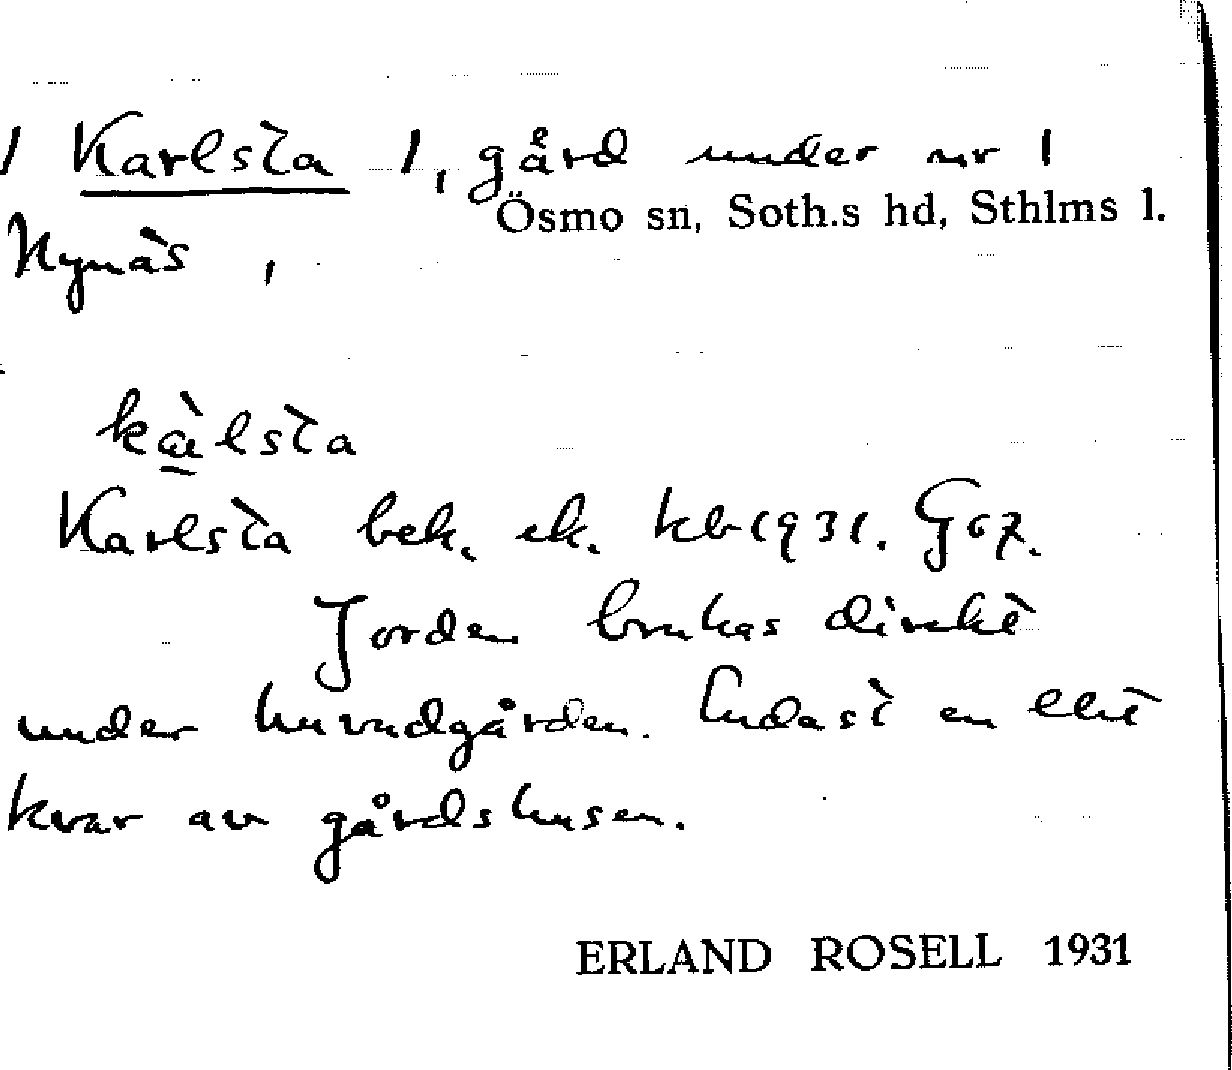 1 Karlsta 1, gård under nr 1
Ösmo sn, Soth.s hd, Sthlms l.
Nynäs,
kàlsta
Karlsta bek. ek. kb 1931. G 67.
Jorden brukas direkt
under huvudgården. Endast en
kvar av gårdshusen.
ERLAND ROSELL 1931